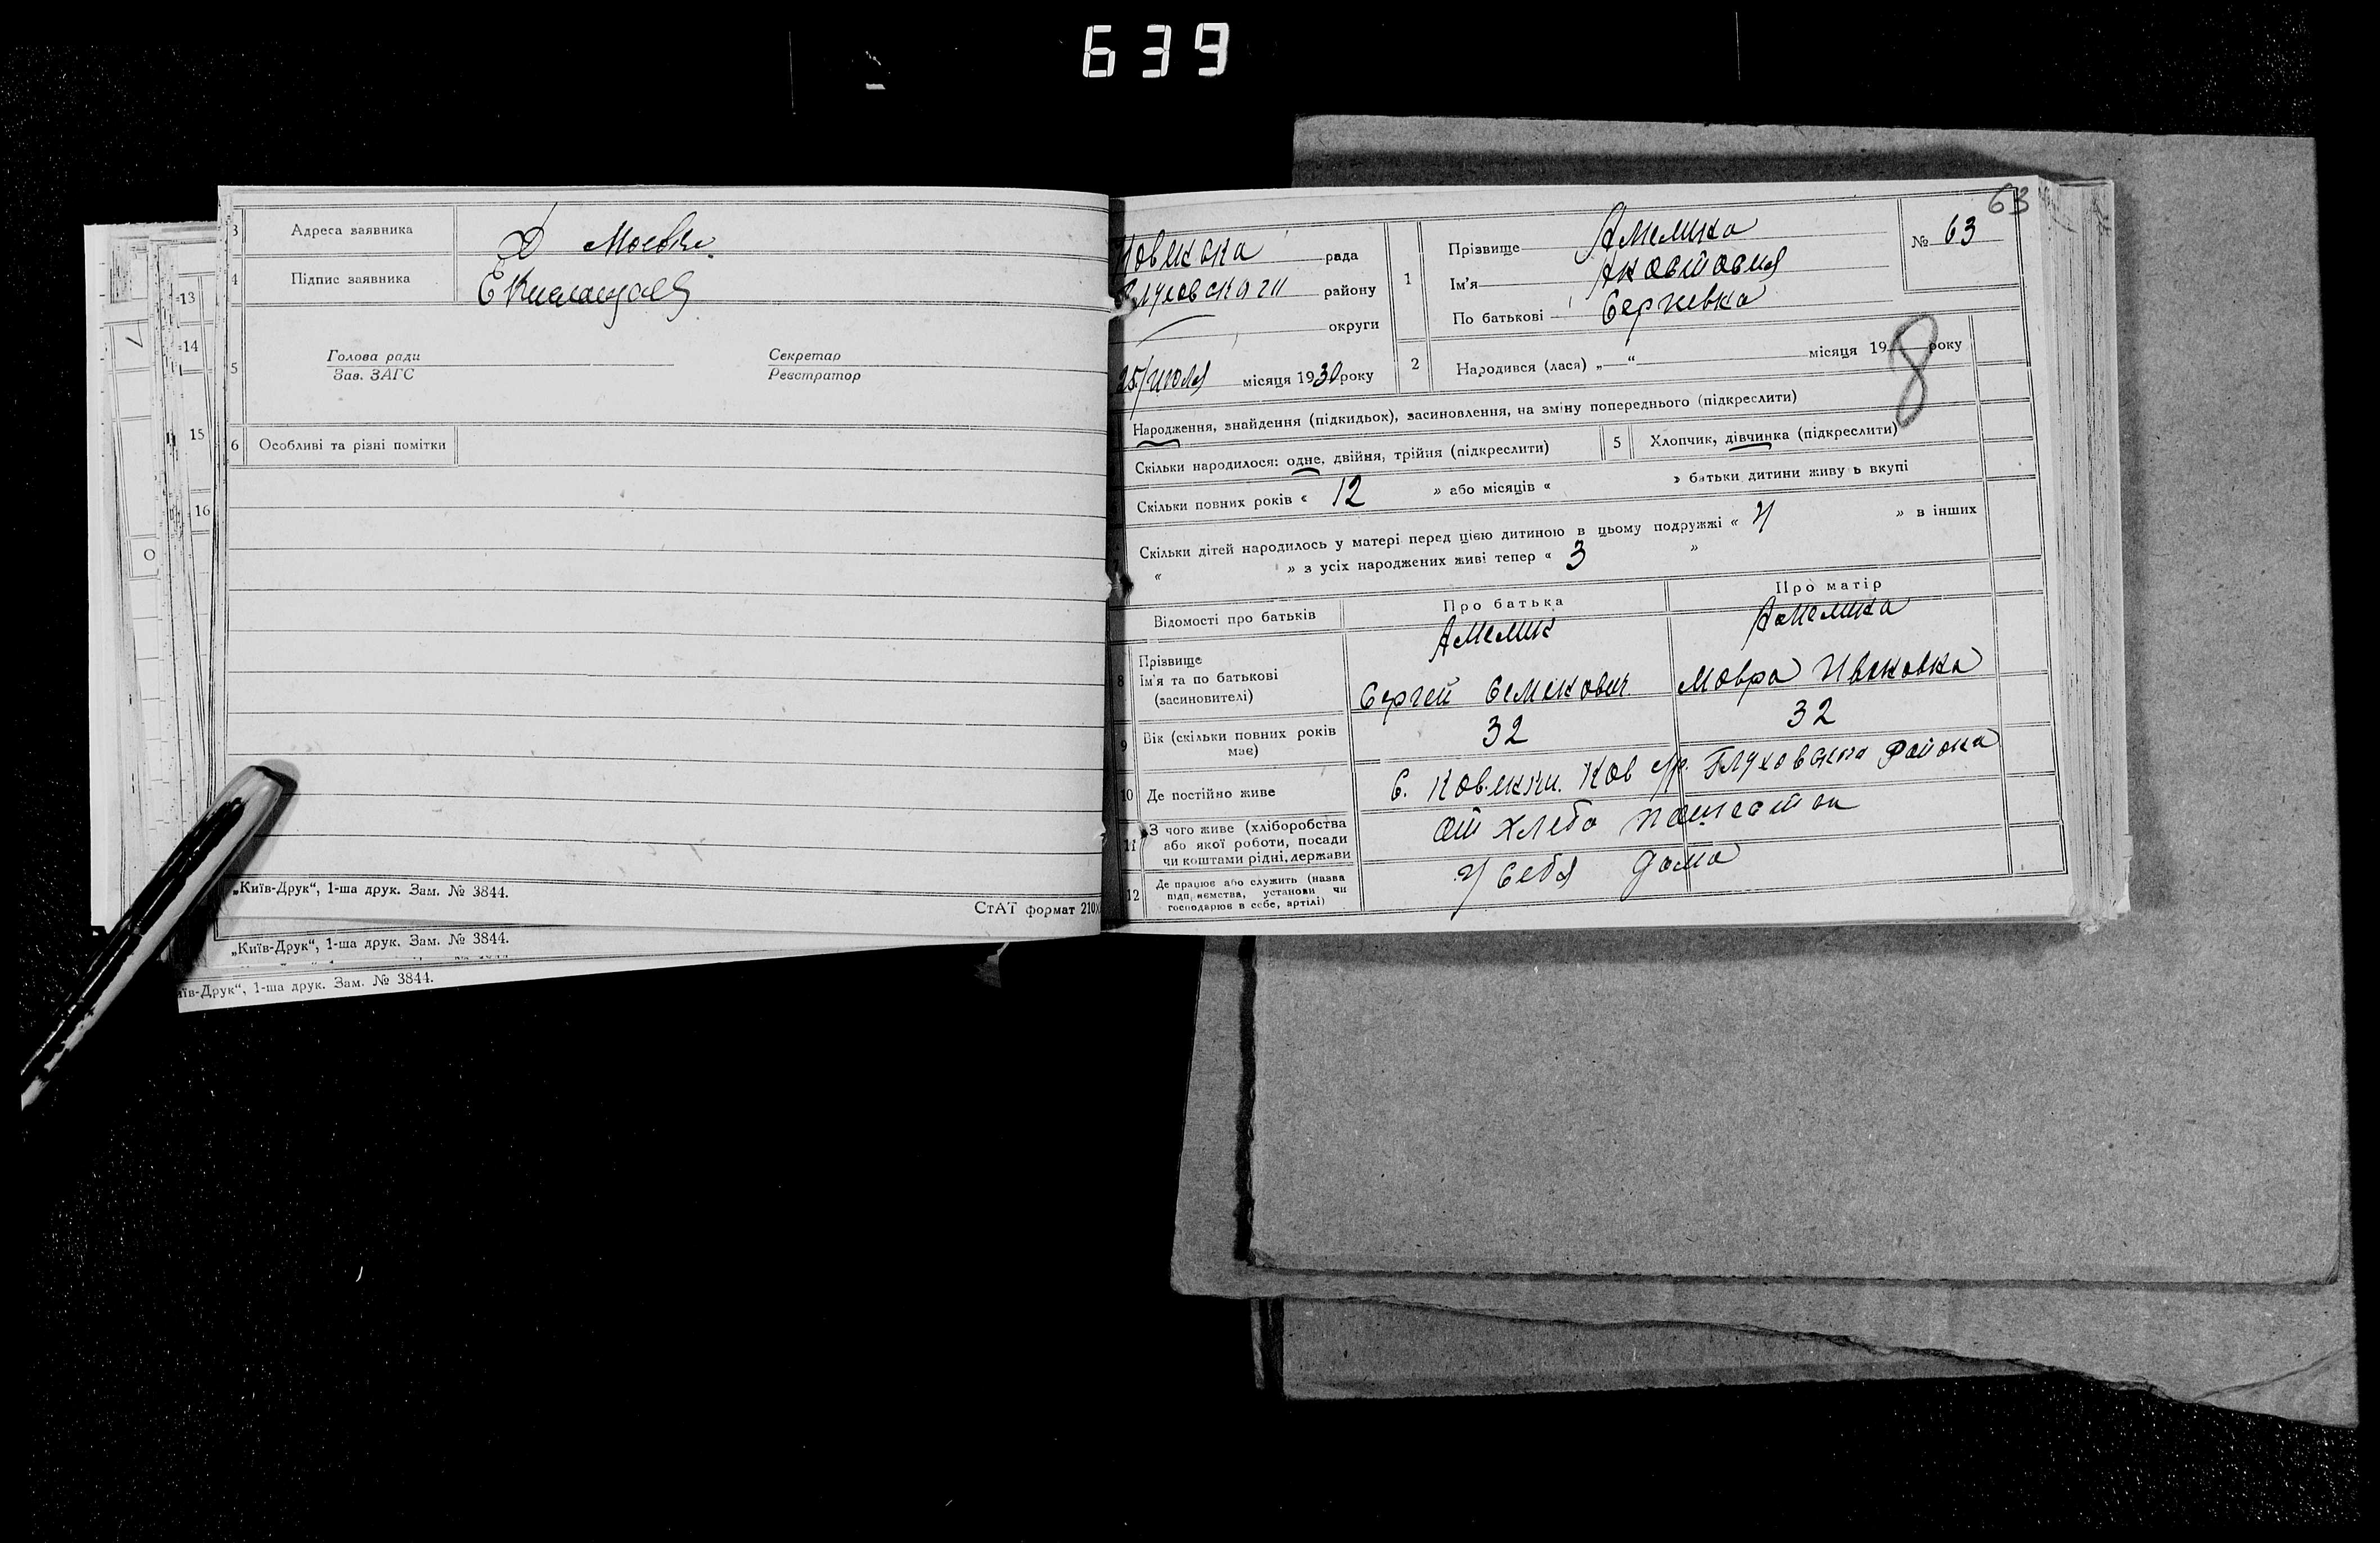 639
3 Адреса заявника Х Моєвка.
4 Підпис заявника
5 Голова ради Секретар
Зав. ЗАГС Реєстратор
6 Особливі та різні помітки
„Київ-Друк“, 1-ша друк. Зам. № 3844.
СтАТ формат 210
„Київ-Друк“, 1-ша друк. Зам. № 3844.
їв-Друк“, 1-ша друк. Зам. № 3844.
13
14
15
16
63
рада
району
округи
25/июля місяця 1930 року
1 Прізвище Амелика
Ім'я
По батькові Сергиевка
№ 63
2 Народився (лася) „—“ місяця 19 року
8
Народження, знайдення (підкидьок), засиновлення, на зміну попереднього (підкреслити)
Скільки народилося: одне, двійня, трійня (підкреслити) 5 Хлопчик, дівчинка (підкреслити)
Скільки повних років « 12 » або місяців « » батьки дитини живу ь вкупі
Скільки дітей народилось у матері перед цією дитиною в цьому подружжі « 4 » в інших
« » з усіх народжених живі тепер « 3 »
Відомості про батьків Про батька Про матір
8 Прізвище Амелик Амелика
Ім'я та по батькові Сергей Семенович Мавра Ивановна
(засновителі)
9 Вік (скільки повних років має) 32 32
10 Де постійно живе С. Ков с/р. Глуховскаа Района
11 З чого живе (хліборобства
або якої роботи, посади От хлеба
чи коштами рідні, держави
12 Де працює або служить (назва
підприємства, установи чи У себя дома
господарює в себе, артілі)